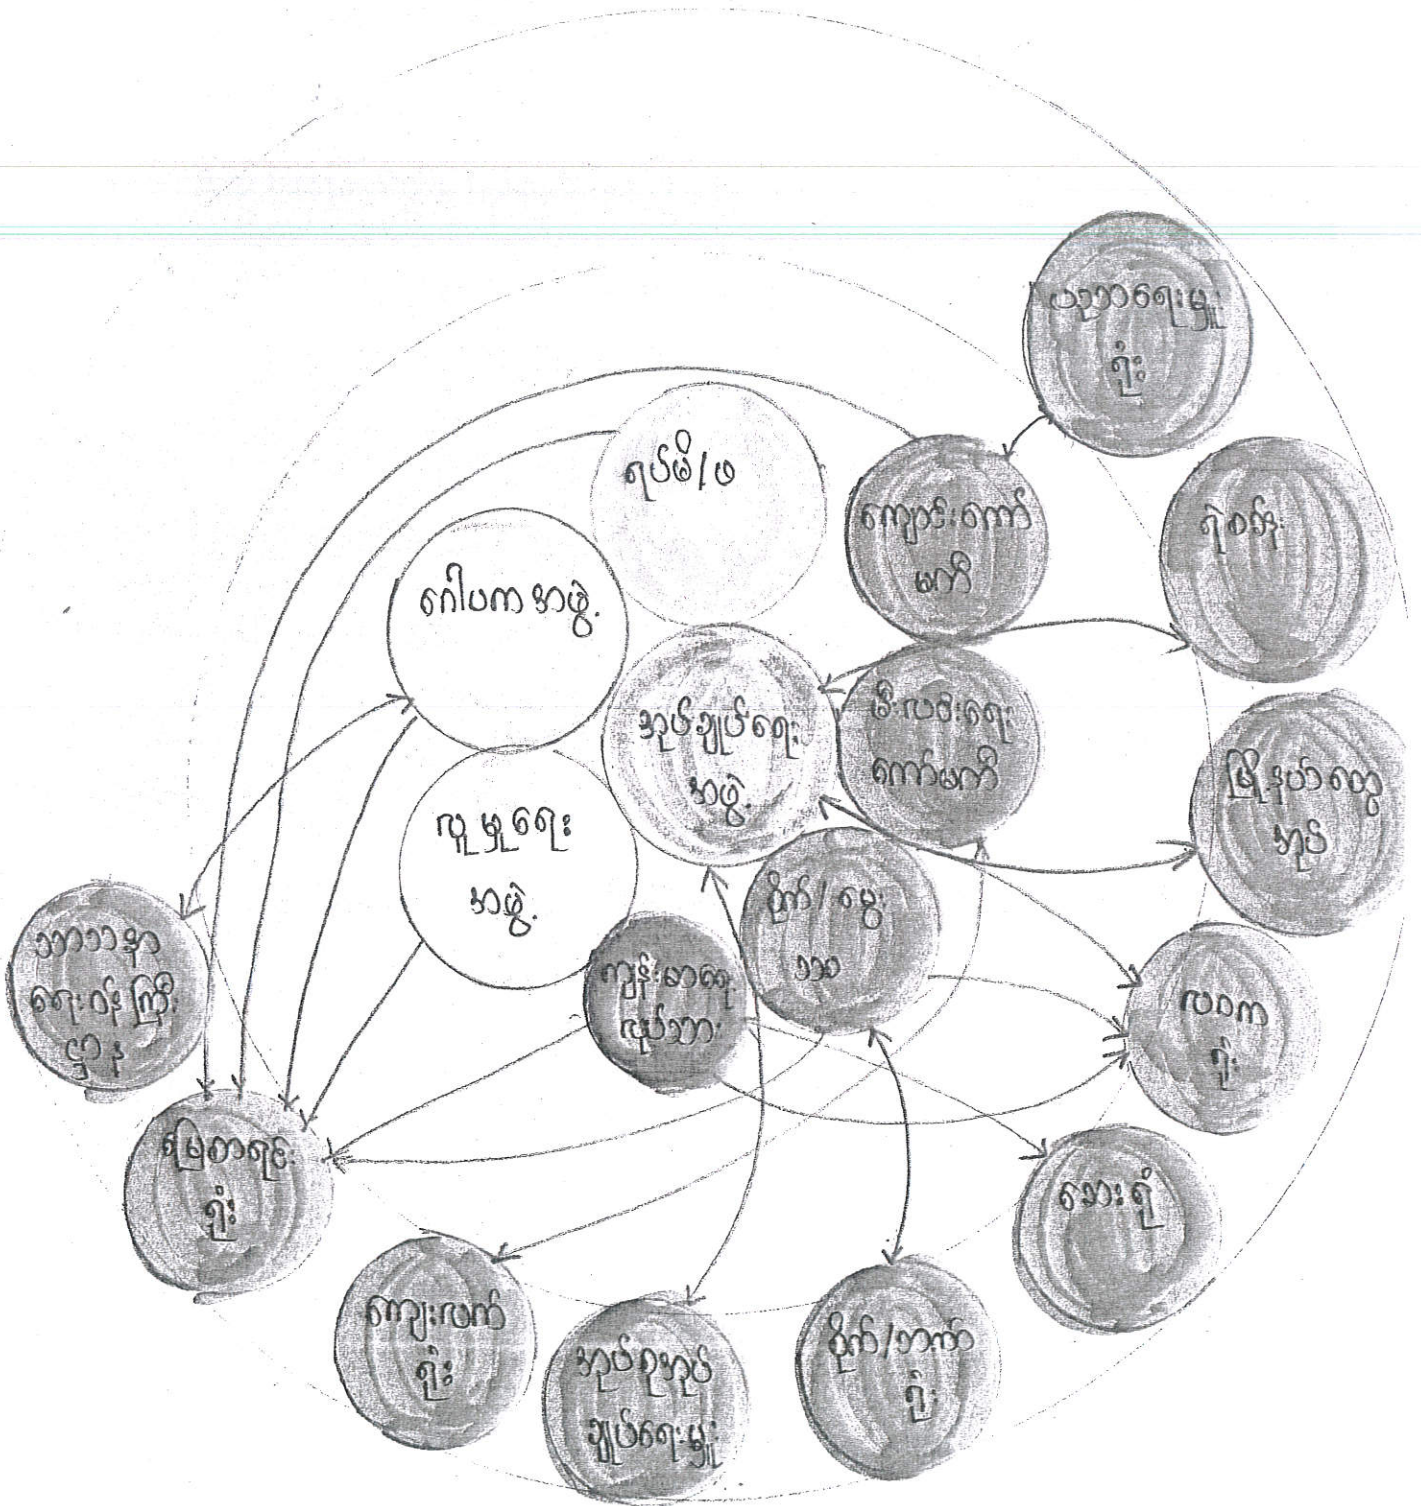 ပညာရေးမှူး
ရုံး
ရပ်မိ/ဖ
ကျောင်းကော်
မတီ
ရဲစခန်း
ဂေါပကအဖွဲ့
အုပ်ချုပ်ရေး
အဖွဲ့
မီးလင်းရေး
ကော်မတီ
မြို့နယ်ထွေ
အုပ်
လူမှုရေး
အဖွဲ့
စိုက်/မွေး
သာသနာ
ရေးဝန်ကြီး
ဌာန
ကျန်းမာရေး
လုပ်သား
လဝက
ရုံး
မြေစာရင်း
ရုံး
ဆေးရုံ
ကျေးလက်
ရုံး
အုပ်စုအုပ်
ချုပ်ရေးမှူး
စိုက်/ဘဏ်
ရုံး